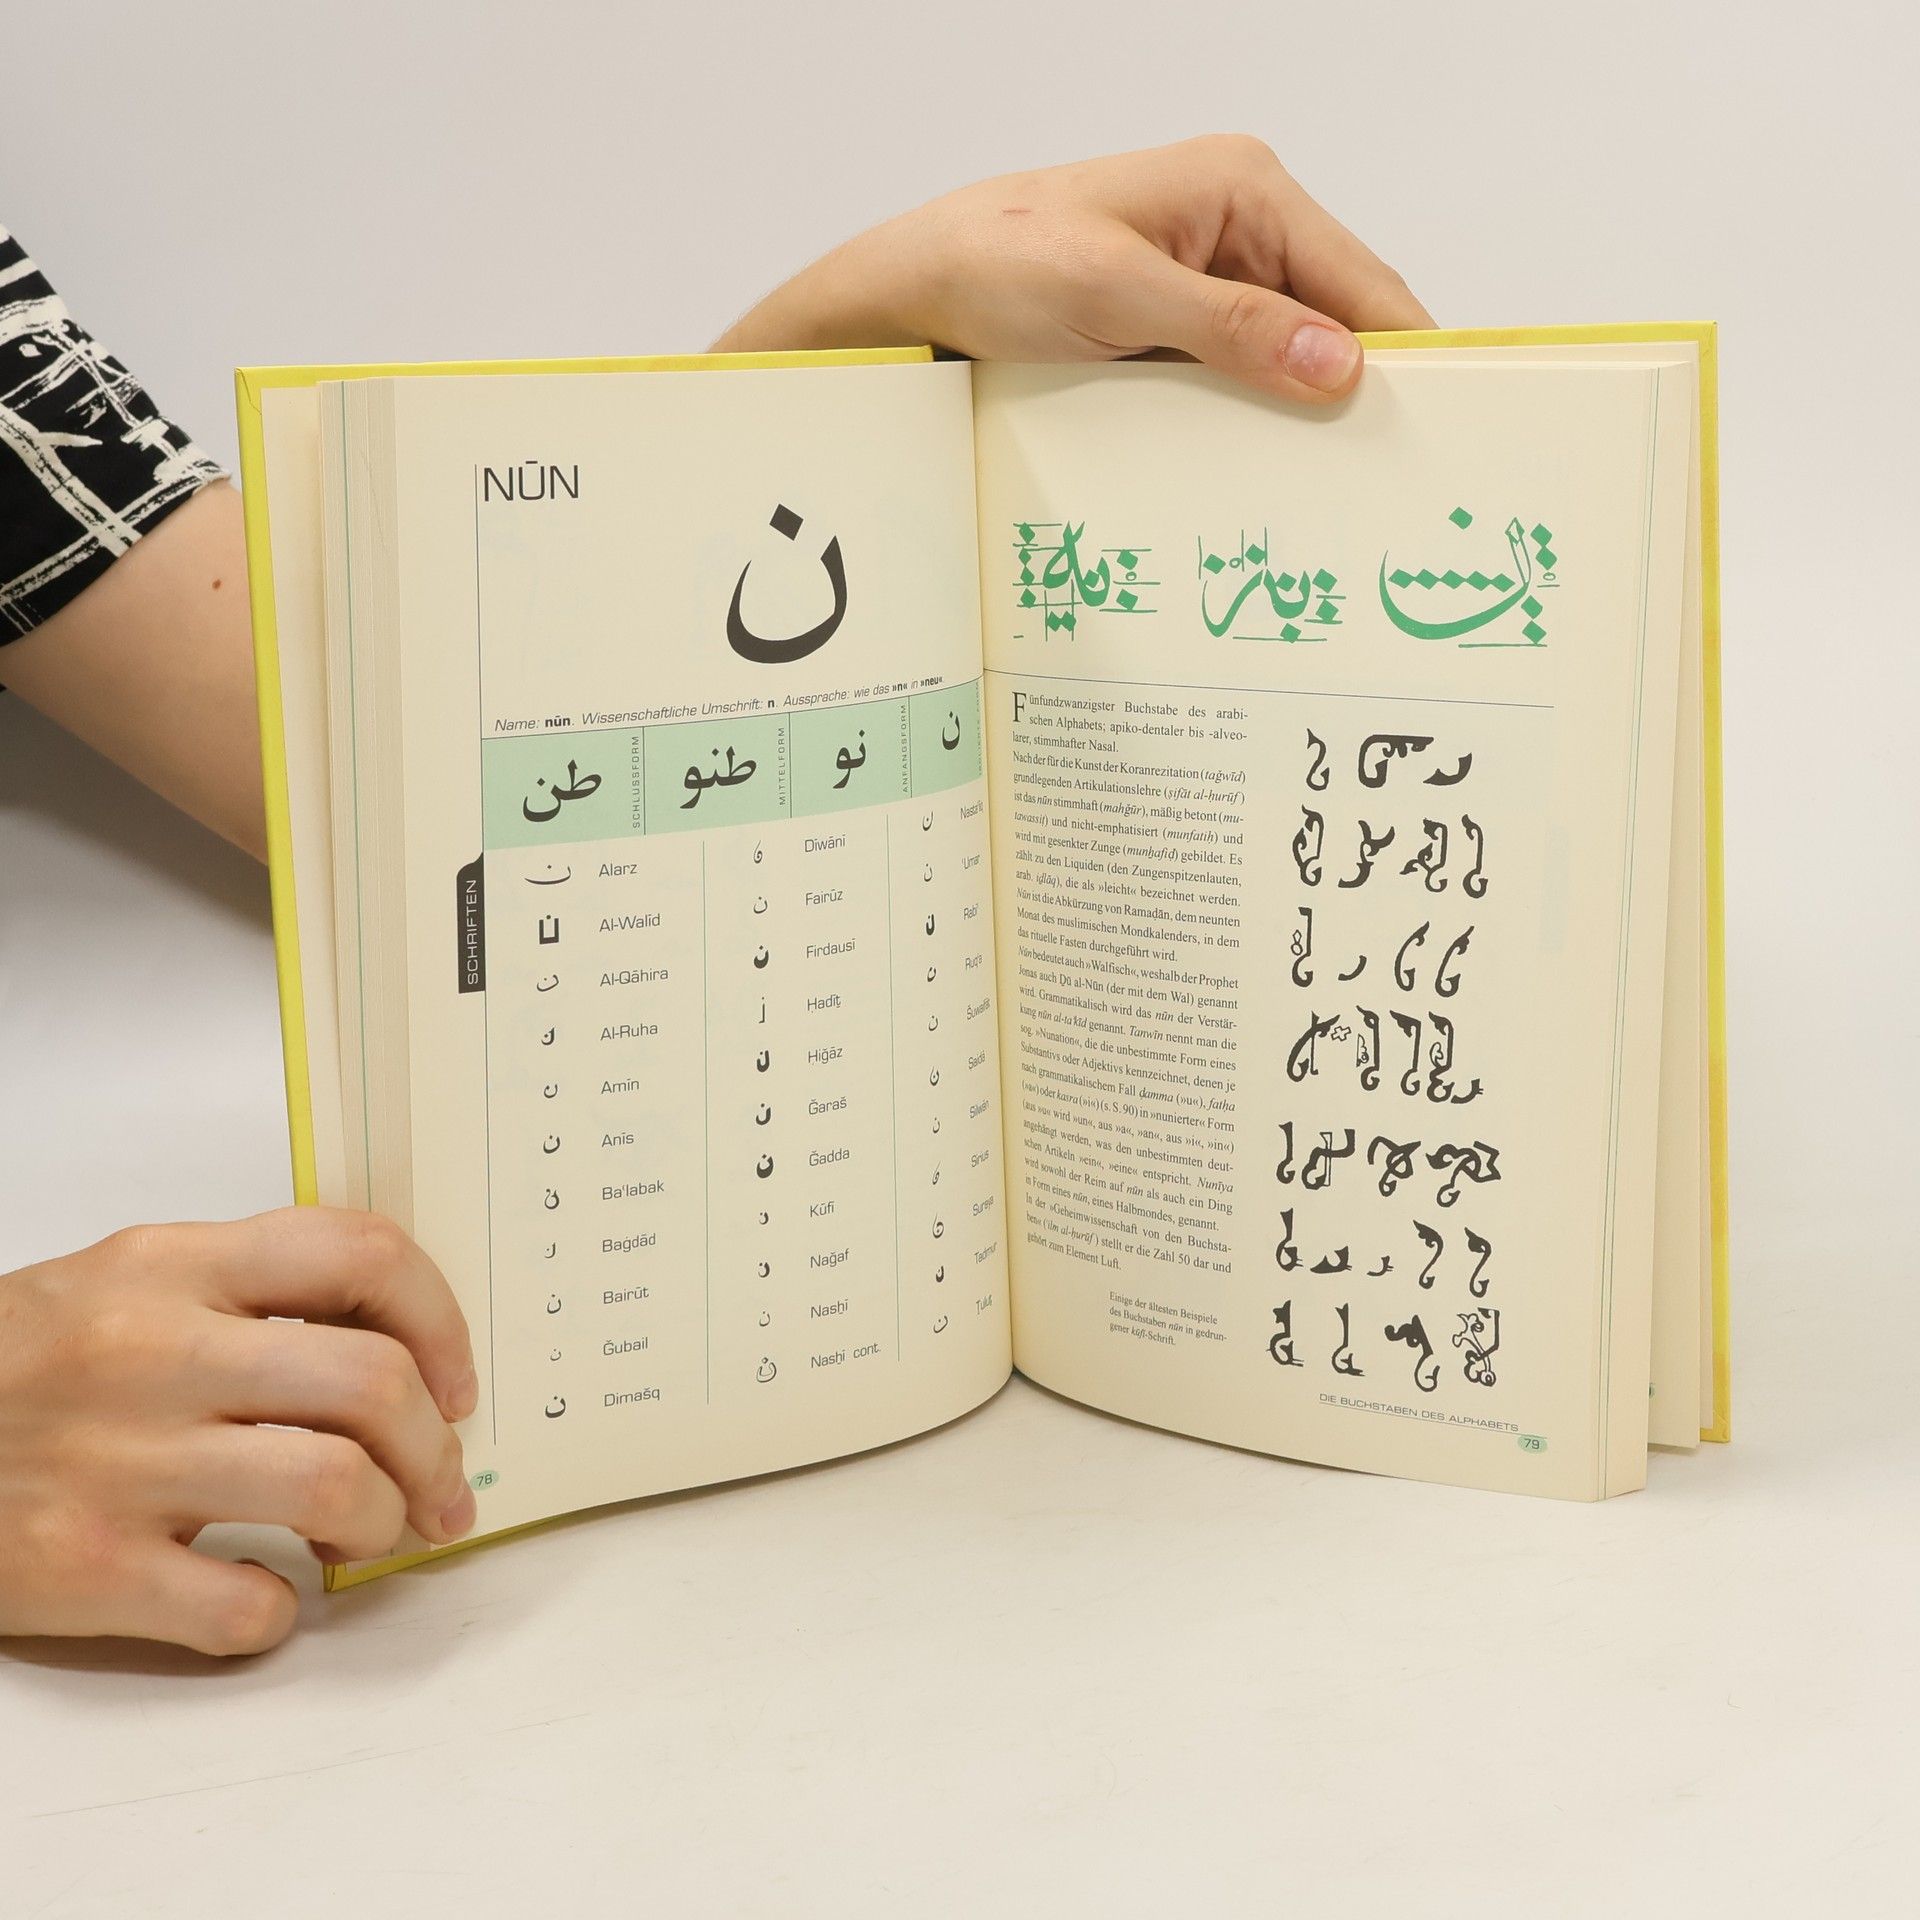 NŪN
ن
Name: nūn. Wissenschaftliche Umschrift: n. Aussprache: wie das »n« in »neu«.
طن SCHLUSSFORM طنو MITTELFORM نو ANFANGSFORM ن
SCHRIFTEN
ن Alarz
ن Al-Walīd
ن Al-Qāhira
ن Al-Ruha
ن Amīn
ن Anīs
ن Ba'labak
ن Baġdād
ن Bairūt
ن Ǧubail
ن Dimašq
ن Dīwānī
ن Fairūz
ن Firdausī
ن Ḥadīṯ
ن Ḥiǧāz
ن Ǧaraš
ن Ǧadda
ن Kūfī
ن Naǧaf
ن Nasḫī
ن Nasḫī cont.
ن Nasta'līq
ن 'Umar
ن Rabī'
ن Ruq'a
ن Šuwaifāt
ن Saidā
ن Silwān
ن Sirius
ن Sureya
ن Tadmur
ن Ṯuluṯ
78
Fünfundzwanzigster Buchstabe des arabi-
schen Alphabets; apiko-dentaler bis -alveo-
larer, stimmhafter Nasal.
Nach der für die Kunst der Koranrezitation (taǧwīd)
grundlegenden Artikulationslehre (ṣifāt al-ḥurūf)
ist das nūn stimmhaft (maǧhūr), mäßig betont (mu-
tawassiṭ) und nicht-emphatisiert (munfatiḥ) und
wird mit gesenkter Zunge (munḫafiḍ) gebildet. Es
zählt zu den Liquiden (den Zungenspitzenlauten,
arab. iḏlāq), die als »leicht« bezeichnet werden.
Nūn ist die Abkürzung von Ramaḍān, dem neunten
Monat des muslimischen Mondkalenders, in dem
das rituelle Fasten durchgeführt wird.
Nūn bedeutet auch »Walfisch«, weshalb der Prophet
Jonas auch Ḏū al-Nūn (der mit dem Wal) genannt
wird. Grammatikalisch wird das nūn der Verstär-
kung nūn al-ta'kīd genannt. Tanwīn nennt man die
sog. »Nunation«, die die unbestimmte Form eines
Substantivs oder Adjektivs kennzeichnet, denen je
nach grammatikalischem Fall ḍamma (»u«), fatḥa
(»a«) oder kasra (»i«) (s. S. 90) in »nunierter« Form
(aus »u« wird »un«, aus »a«, »an«, aus »i«, »in«)
angehängt werden, was den unbestimmten deut-
schen Artikeln »ein«, »eine« entspricht. Nunīya
wird sowohl der Reim auf nūn als auch ein Ding
in Form eines nūn, eines Halbmondes, genannt.
In der »Geheimwissenschaft von den Buchsta-
ben« ('ilm al-ḥurūf) stellt er die Zahl 50 dar und
gehört zum Element Luft.
Einige der ältesten Beispiele
des Buchstaben nūn in gedrun-
gener kūfī-Schrift.
DIE BUCHSTABEN DES ALPHABETS
79